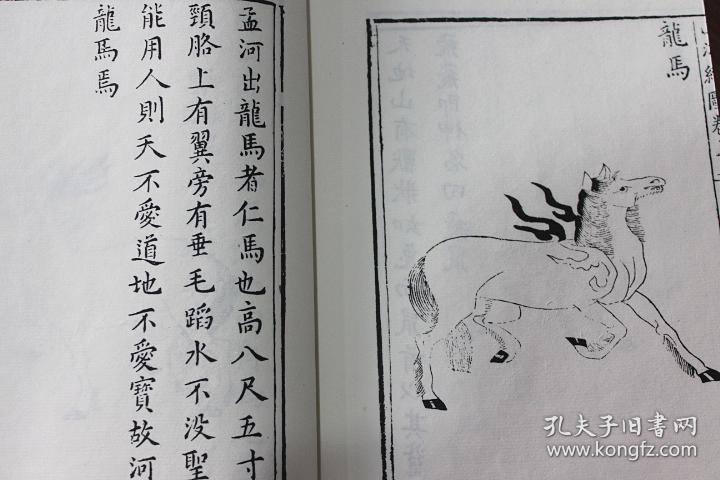 龍馬
孟河出龍馬者仁馬也高八尺五寸
頸胳上有翼旁有垂毛蹈水不没聖
能用人則天不愛道地不愛寶故河
龍馬焉
孔夫子旧书网
www.kongfz.com